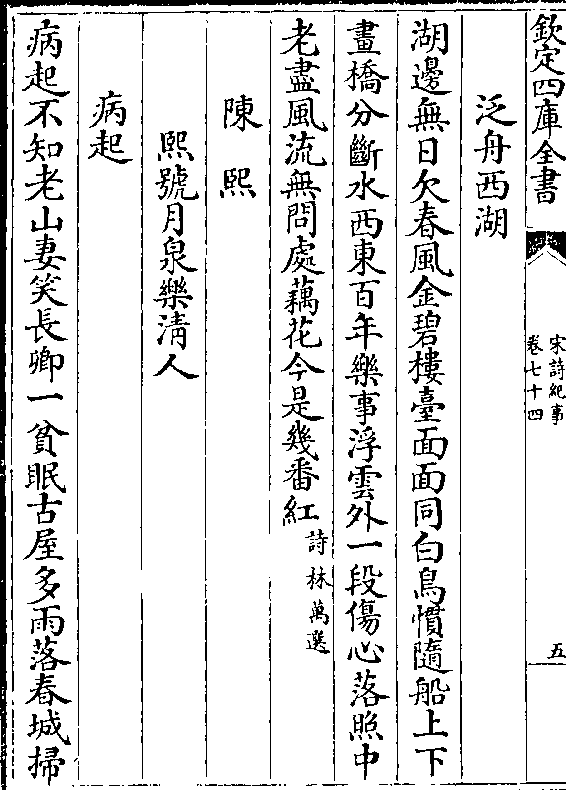 欽定四庫全書
宋詩紀事
卷七十四
五
泛舟西湖
湖邊無日欠春風金碧樓臺面面同白鳥慣隨船上下
畫橋分斷水西東百年樂事浮雲外一段傷心落照中
老盡風流無問處藕花今是幾番紅詩林萬選
陳熙
熙號月泉樂清人
病起
病起不知老山妻笑長卿一貧眠古屋多雨落春城掃